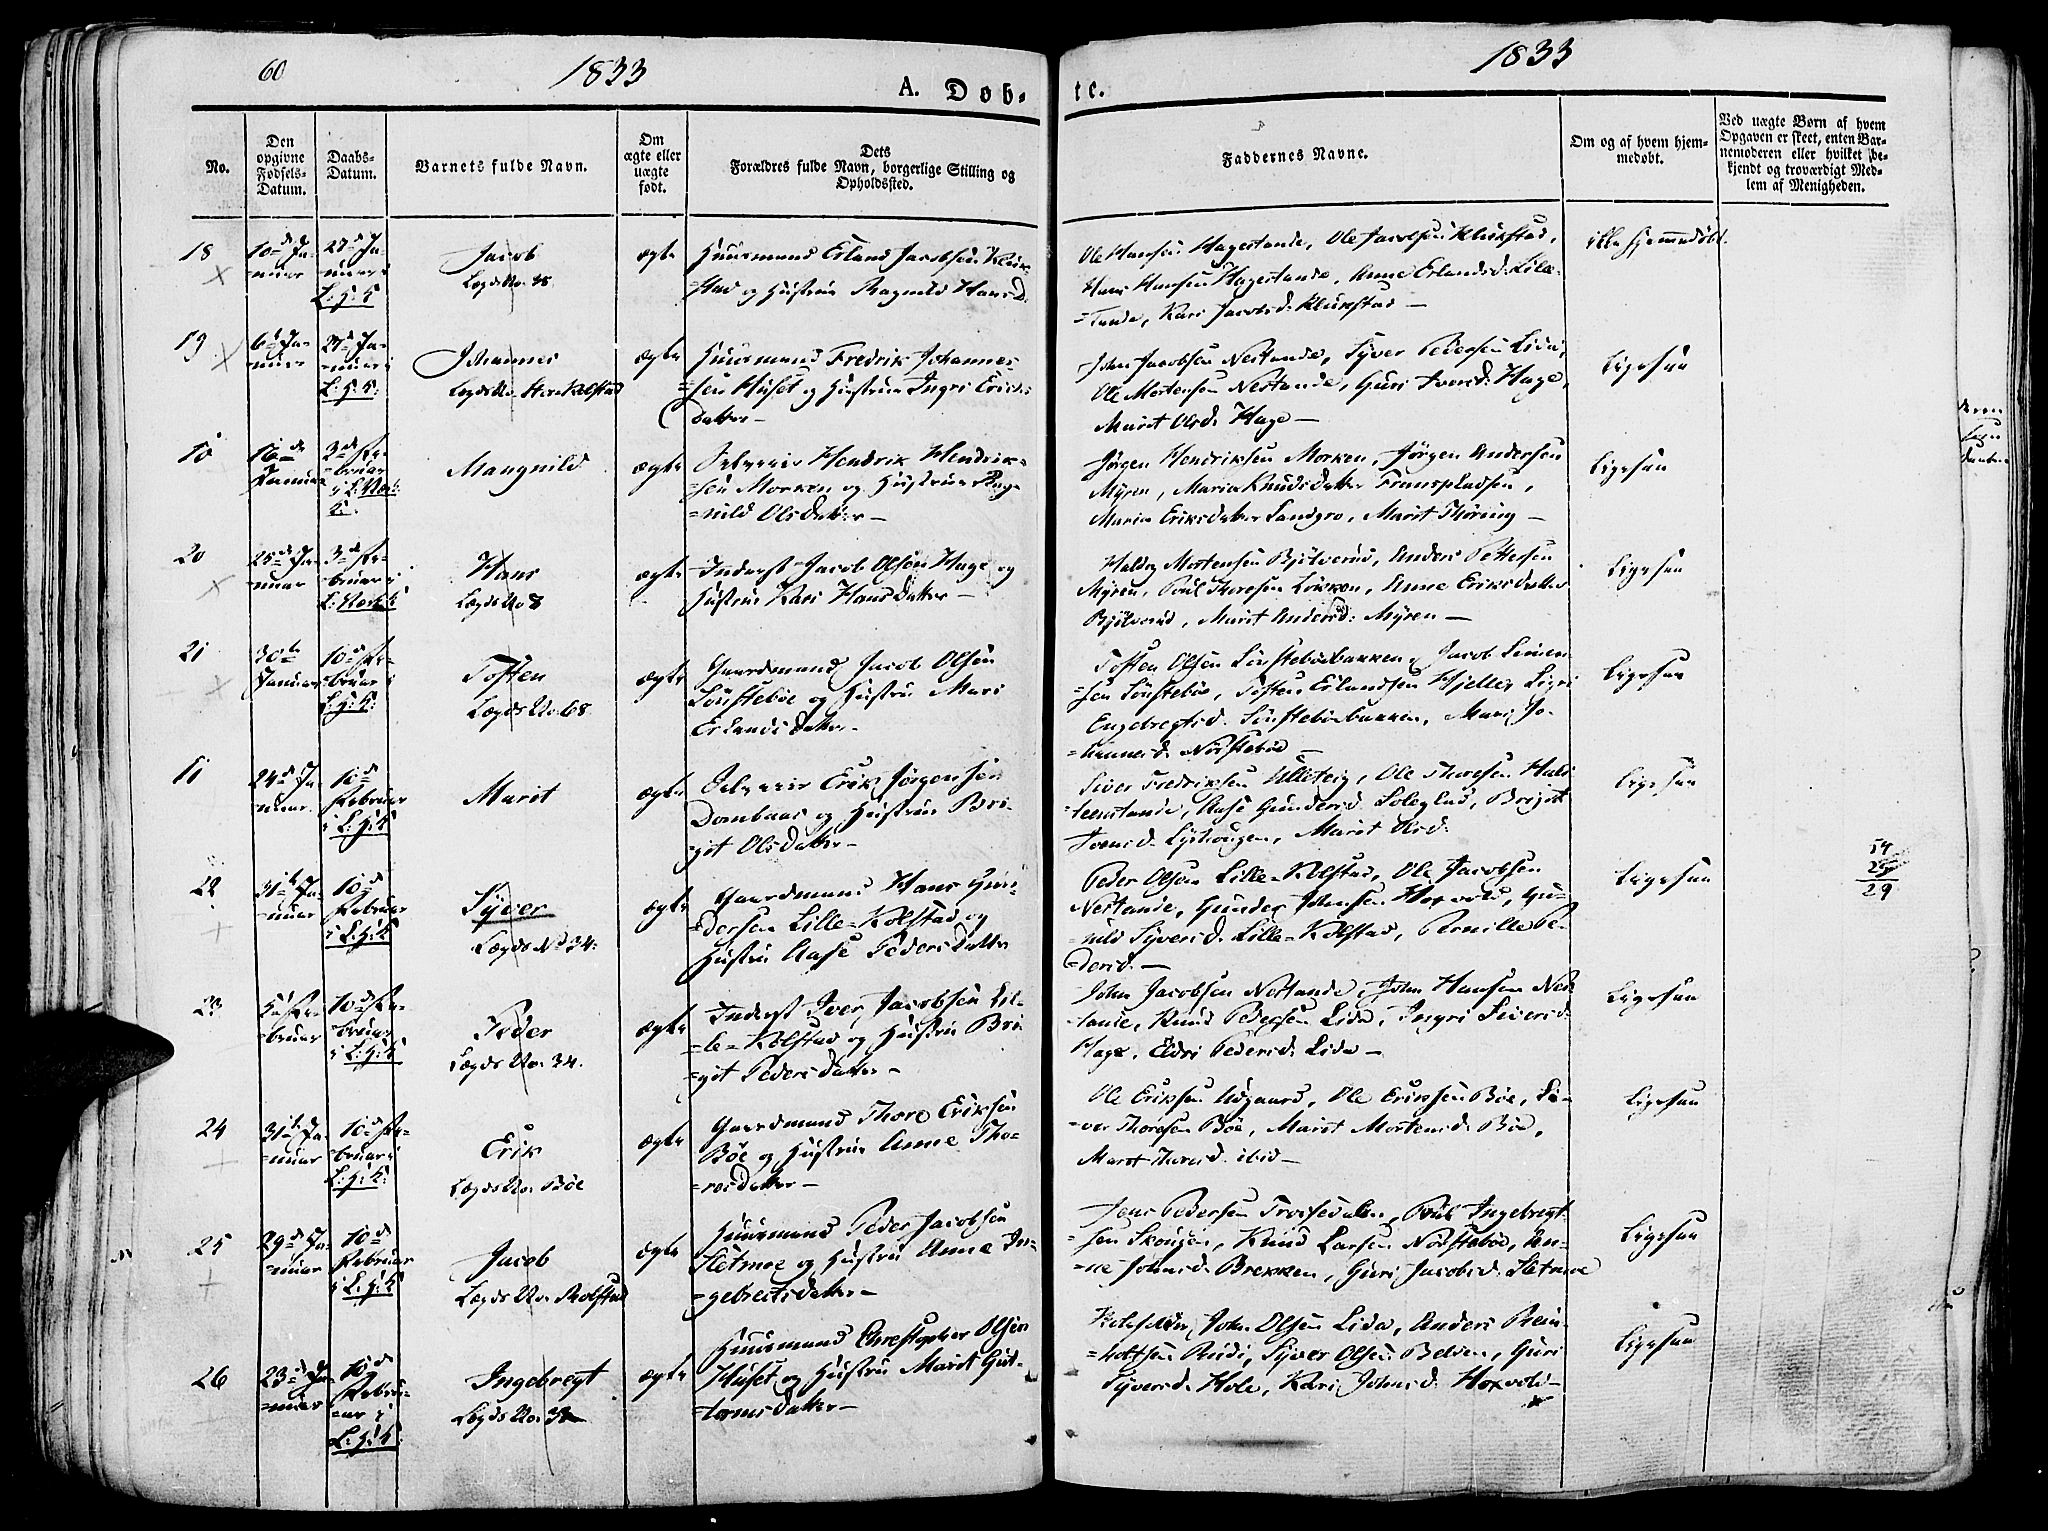 60
1833
A. Døb-
te.
1833
No.
Den opgivne Fødsels-Datum.
Daabs-Datum.
Barnets fulde Navn.
Om ægte eller uægte født.
Dets Forældres fulde Navn, borgerlige Stilling og Opholdssted.
Faddernes Navne.
Om og af hvem hjem-medøbt.
Ved uægte Børn af hvem Opgaven er skeet, enten Bar-nemoderen eller hvilket be-kjendt og troværdigt Med-lem af Menigheden.
18
10de Ja-
-nuar
27de Ja-
-nuar i
L: H: K
Jacob
Lægds No. 38.
ægte
Huusmand Erland Jacobsen Kluk-
-stad og Hustrue Ragnild Hansd:
Ole Hansen Hagestande, Ole Jacobsen Klukstad,
Hans Hansen Hagestande, Anne Erlandsd: Lille-
-Tande, Kari Jacobsd: Klukstad —
ikke hjemmedøbt.
19
6te Ja-
-nuar
27de Ja-
-nuar i
L: H: K:
Johannes
Lægds No. Store Kolstad
ægte
Huusmand Fredrik Johannes-
-sen Huset og Hustrue Ingri Erics-
datter —
John Jacobsen Nestande, Syver Pedersen Lida,
Ole Mortensen Nestande, Guri Iversd: Hage,
Marit Olsd: Hage —
Ligesaa
10
16de
Januar
3de Fe-
-bruar
i L: Værk:
K.
Mangnild
ægte
Selveier Hendrik Hendrik-
-sen Morken og Hustrue Rag-
-nild Olsdatter —
Jørgen Hendriksen Morken, Jørgen Andersen
Myren, Maria Knudsdatter Transpladsen,
Maria Eriksdatter Landgro, Marit Thøring —
Ligesaa
20
25de Ja-
-nuar
3de Fe-
-bruar i
L: Værk: K
Hans
Lægds No 8
ægte
Inderst Jacob Olsen Hage og
Hustrue Kari Hansdatter —
Haldor Mortensen Bjølverud, Anders Pettersen
Myren, Poul Thoresen Løkken, Anne Eriksdatter
Bjølverud, Marit Andersd: Myren —
Ligesaa
21
30te
Januar
10de Fe-
-bruar i
L: H: K:
Tosten
Lægds No. 68.
ægte
Gaardmand Jacob Olsen
Lønstebøe og Hustrue Mari
Erlandsdatter —
Tosten Olsen Lønstebøebakken, Jacob Simen-
-sen Lønstebøe, Tosten Erlandsen Hjelle, Sigri
Engebregtsd. Lønstebøebakken, Mari Jo-
-hannesd. Nørstebøe —
Ligesaa
11
24de Ja-
nuar.
10de
Februar
i L: H: K
Marit
ægte
Selveier Erik Jørgensen
Dombaas og Hustrue Bri-
-git Olsdatter —
Siver Fredriksen Ulleteig, Ole Thoresen
Aase Gundersd. Soleglad, Brigit
Iversd. Lyshougen, Marit Olsd.
Ligesaa
54
25
29
22
31te Ja-
-nuar
10de
Februar
i L: H: K
Syver
Lægds No 34:
ægte
Gaardmand Hans Gun-
-dersen Lille-Kolstad og
Hustrue Aase Pedersdatter
Peder Olsen Lille-Kolstad, Ole Jacobsen
Nestande, Gunder Johnsen Hoxvold, Gu-
-nild Syversd. Lille-Kolstad, Pernille Pe-
-dersd. —
Ligesaa
23
5te Fe-
-bruar
10de Fe-
-bruar
i L: H: K
Peder
Lægds No. 34.
ægte
Inderst Iver Jacobsen Lil-
-le-Kolstad og Hustrue Bri-
-git Pedersdatter —
John Jacobsen Nestande, John Hansen Nes-
-tande, Knud Pedersen Lida, Ingri Siversd:
Hage, Eldri Pedersd: Lida —
Ligesaa
24
31te Ja-
-nuar
10de Fe-
bruar i
L: H: K:
Erik
Lægds No. Bøe
ægte
Gaardmand Thore Eriksen
Bøe og Hustrue Anne Tho-
-resdatter —
Ole Eriksen Udgaard, Ole Eriksen Bøe, Si-
-ver Thoresen Bøe, Marit Mortensd. Bøe,
Marit Thoresd. ibid —
Ligesaa
25
29de Ja-
-nuar
10de
Februar
i L: H: K
Jacob
Lægds No. Kolstad
ægte
Huusmand Peder Jacobsen
Sletmoe og Hustrue Anne In-
-gebretsdatter —
Jens Pedersen Trosedalen, Poul Ingebregt-
-sen Skougen, Knud Larsen Nørstebøe, An-
-ne Johnsd. Brekken, Guri Jacobsd. Sletmoe
Ligesaa
26
23de Ja-
-nuar
10de
Febru-
-ar i
L: H: K:
Ingebregt
Lægds No. 38
ægte
Huusmand Christopher Olsen
Huset og Hustrue Marit Gut-
-tormsdatter —
John Olsen Lida, Anders Rein-
-holtsen Rudi, Syver Olsen Belsen, Guri
Syversd. Hole, Kari Johnsd. Hoxvold —
Ligesaa